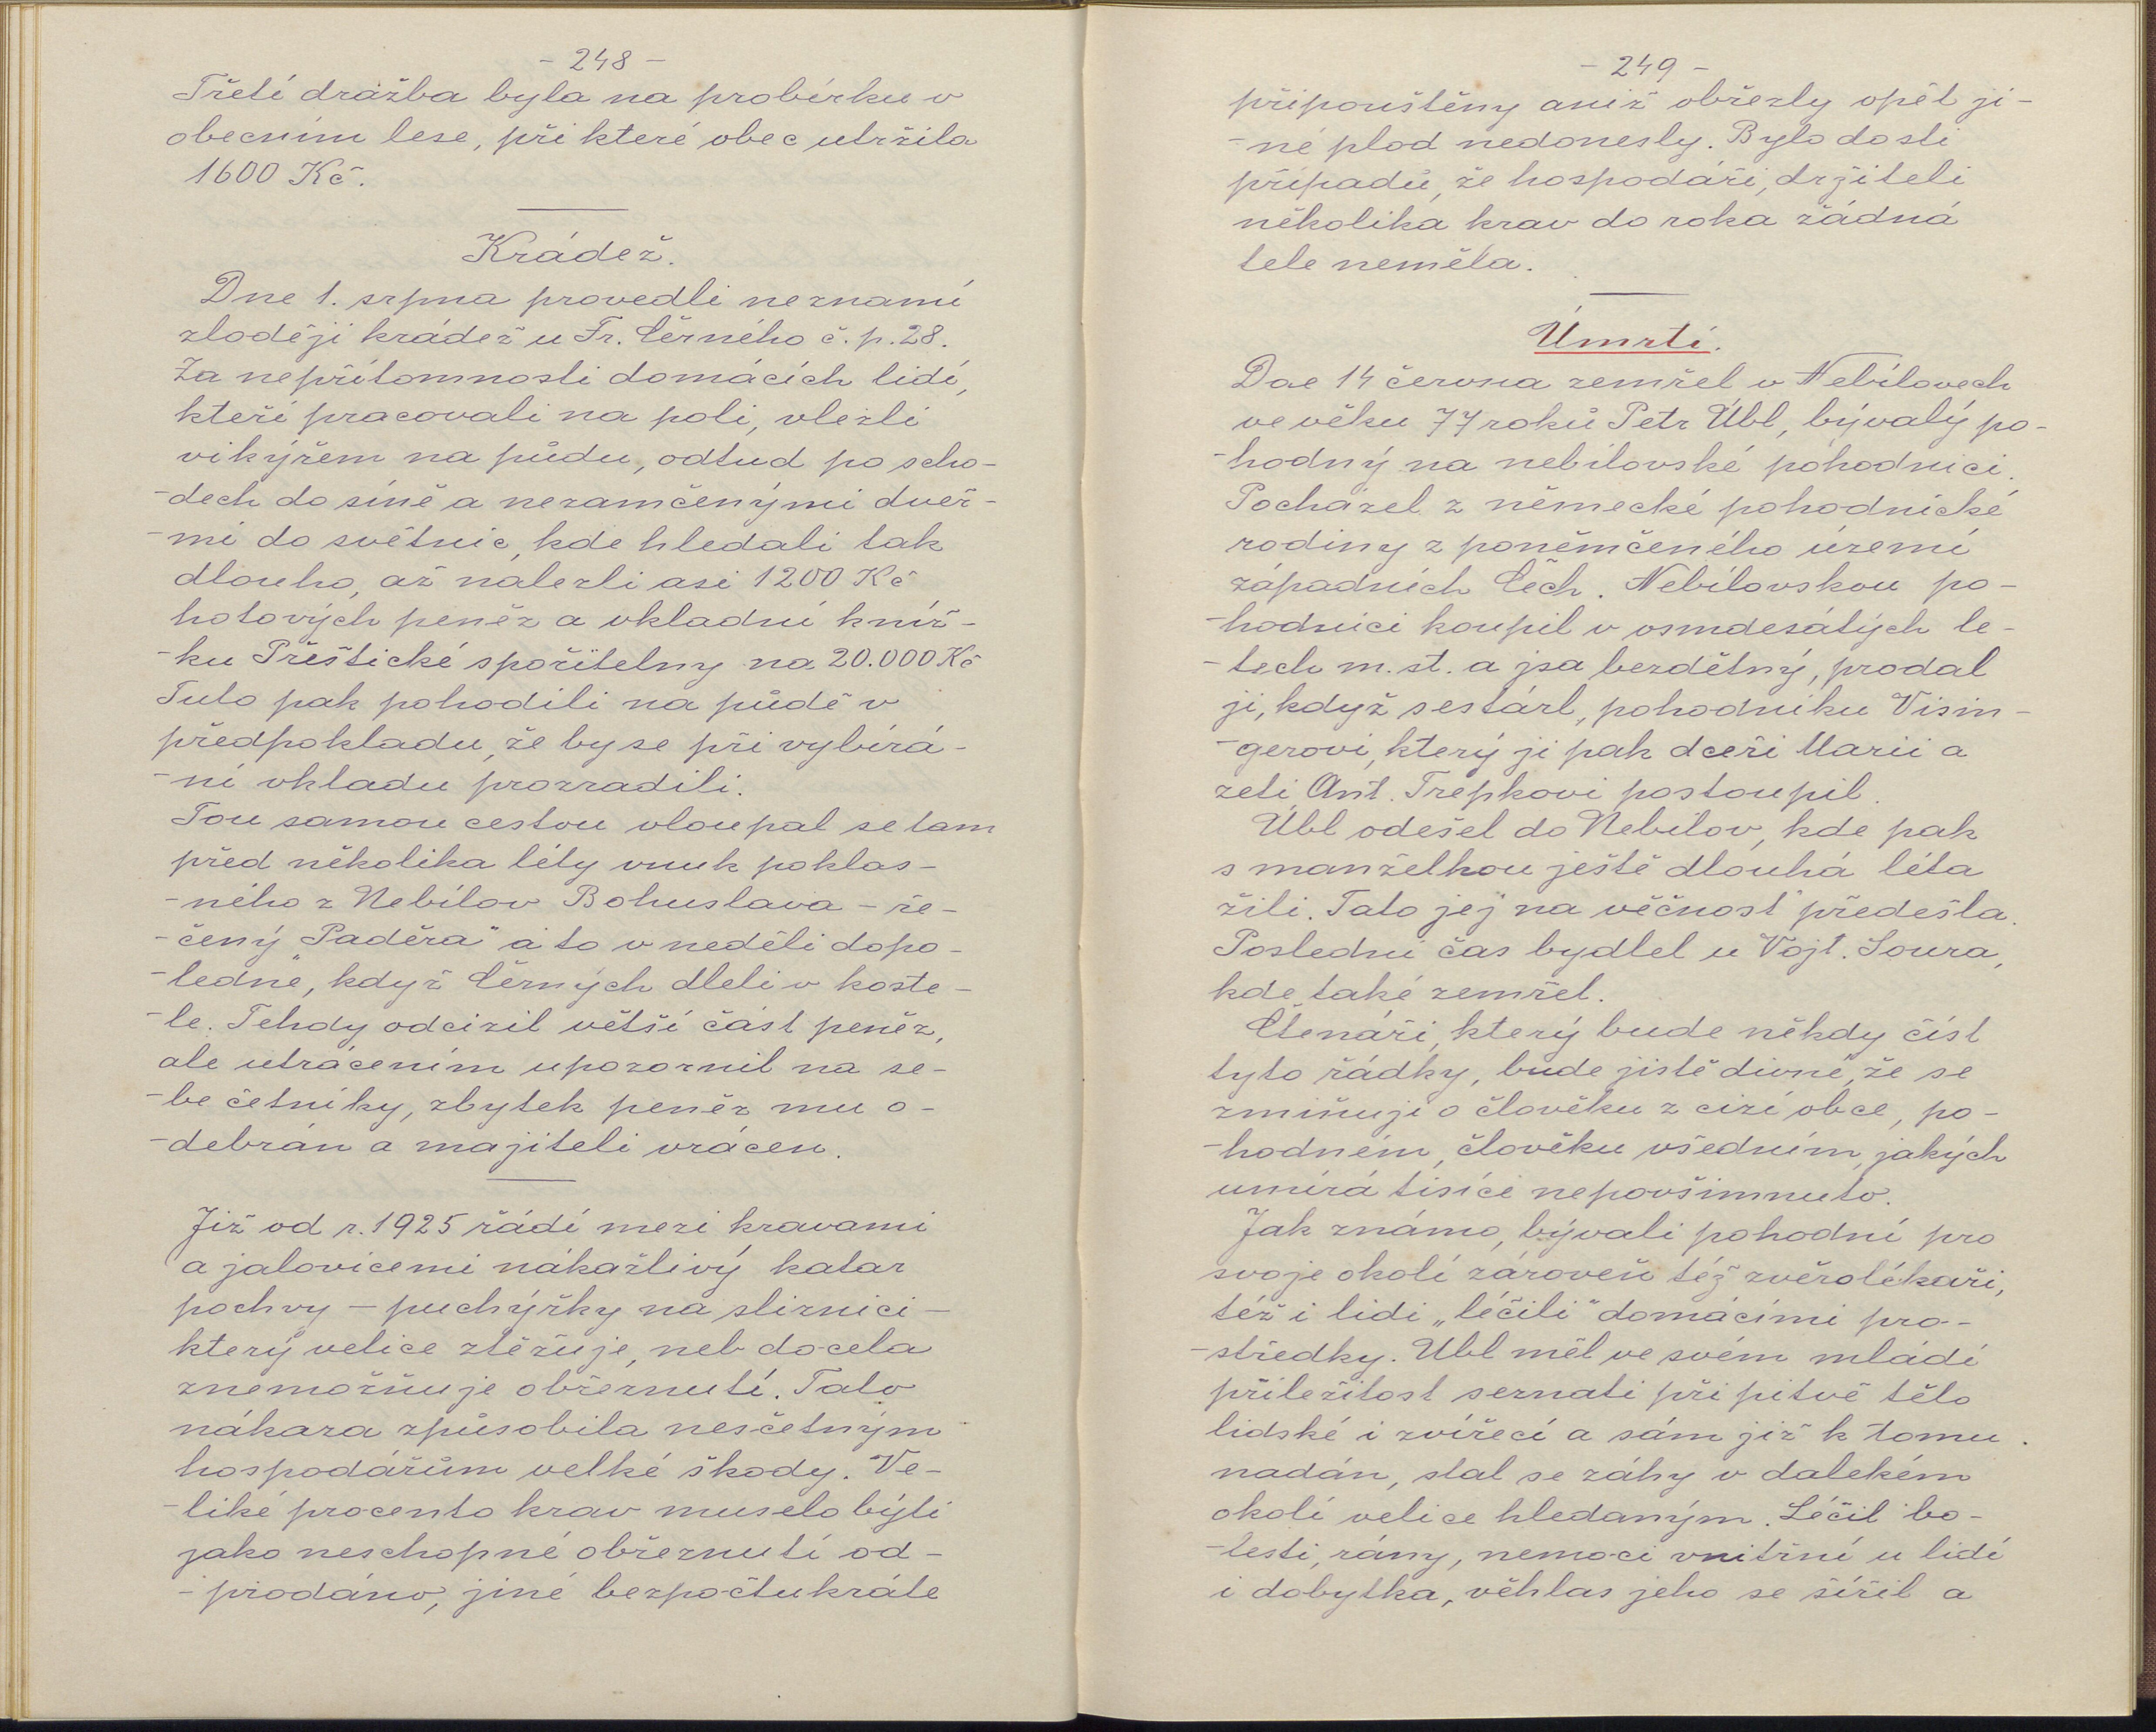 - 248 -
Třetí dražba byla na probírku v
obecním lese, při které obec utržila
1600 Kč.
Krádež.
Dne 1. srpna provedli neznamí
zloději krádež u Fr. Černého č. p. 28.
Za nepřítomnosti domácích lidí,
kteří pracovali na poli, vlezli
vikýřem na půdu, odtud po scho-
-dech do síně a nezamčenými dveř-
-mi do světnic, kde hledali tak
dlouho, až nalezli asi 1200 Kč
hotových peněz a vkladní kníž-
-ku Přeštické spořitelny na 20.000 Kč
Tuto pak pohodili na půdě v
předpokladu, že by se při vybírá-
-ní vkladu prozradili.
Tou samou cestou vloupal se tam
před několika léty vnuk poklas-
-ného z Nebílov Bohuslava - ře-
-čený „Paděra" a to v neděli dopo-
-ledne, když Černých dleli v koste-
-le. Tehdy odcizil větší část peněz,
ale utrácením upozornil na se-
-be četníky, zbytek peněz mu o-
-debrán a majiteli vrácen.
Již od r. 1925 řádí mezi kravami
a jalovicemi nákažlivý katar
pochvy - puchýřky na sliznici -
který velice ztěžuje, neb docela
znemožňuje obřeznutí. Tato
nákaza způsobila nesčetným
hospodářům velké škody. Ve-
-liké procento krav muselo býti
jako neschopné obřeznutí od-
-prodáno, jiné bezpočtukráte
- 249 -
připouštěny aniž obřezly opět ji-
-né plod nedonesly. Bylo dosti
případů, že hospodáři, držiteli
několika krav do roka žádná
tele neměla.
Úmrtí.
Dne 14 června zemřel v Nebílovech
ve věku 77 roků Petr Übl, bývalý po-
-hodný na nebílovské pohodnici.
Pocházel z německé pohodnické
rodiny z poněmčeného území
západních Čech. Nebílovskou po-
-hodnici koupil v osmdesátých le-
-tech m. st. a jsa bezdětný, prodal
ji, když sestárl, pohodníku Visin-
-gerovi, který ji pak dceři Marii a
zeti Ant. Trepkovi postoupil.
Übl odešel do Nebílov, kde pak
s manželkou ještě dlouhá léta
žili. Tato jej na věčnost předešla.
Poslední čas bydlel u Vojt. Soura,
kde také zemřel.
Čtenáři, který bude někdy číst
tyto řádky, bude jistě divné, že se
zmiňuji o člověku z cizí obce, po-
-hodném, člověku všedním, jakých
umírá tisíce nepovšimnuto.
Jak známo, bývali pohodní pro
svoje okolí zároveň též zvěrolékaři,
též i lidi „léčili" domácími pro-
-středky. Übl měl ve svém mládí
příležitost seznati při pitvě tělo
lidské i zvířecí a sám již k tomu
nadán, stal se záhy v dalekém
okolí velice hledaným. Léčil bo-
-lesti, rány, nemoci vnitřní u lidí
i dobytka, věhlas jeho se šířil a